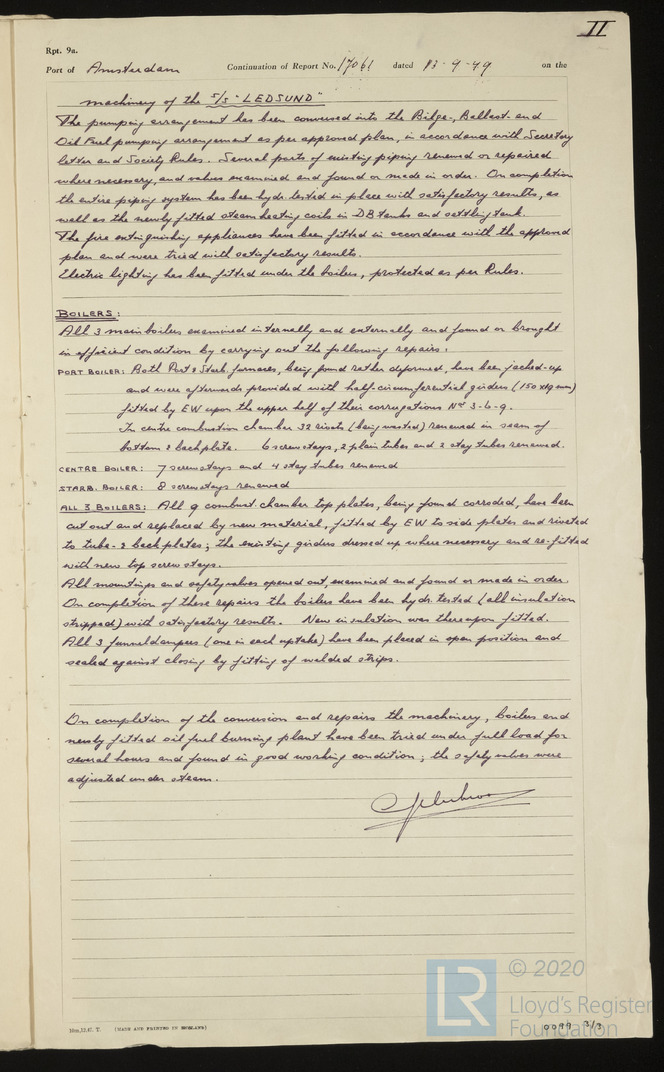 II
Rpt. 9a.
Port of Amsterdam Continuation of Report No. 17061 dated 13-9-49 on the
machinery of the S/S "LEDSUND"
The pumping arrangement has been conversed into the Bilge-, Ballast- and
Oil Fuel pumping arrangement as per approved plan, in accordance with Secretary
letter and Society Rules. Several parts of existing piping renewed or repaired
where necessary, and valves examined and found or made in order. On completion
the entire piping system has been hydr. tested in place with satisfactory results, as
well as the newly fitted steamheating coils in DB tanks and settling tank.
The fire extinguishing appliances have been fitted in accordance with the approved
plan and were tried with satisfactory results.
Electric lighting has been fitted under the boilers, protected as per Rules.
BOILERS:
All 3 main boilers examined internally and externally and found or brought
in efficient condition by carrying out the following repairs:
PORT BOILER: Both Port & Starb. furnaces, being found rather deformed, have been jacked-up
and were afterwards provided with half-circumferential girders (150 x 19 mm)
fitted by EW upon the upper half of their corrugations Nos 3-6-9.
In centre combustion chamber 32 rivets (being wasted) renewed in seam of
bottom & backplate. 6 screwstays, 2 plain tubes and 2 stay tubes renewed.
CENTRE BOILER: 7 screwstays and 4 stay tubes renewed
STARB. BOILER: 8 screwstays renewed
ALL 3 BOILERS: All 9 combust. chamber top plates, being found corroded, have been
cut out and replaced by new material, fitted by EW to side plates and riveted
to tube- & back plates; the existing girders dressed up where necessary and re-fitted
with new top screw stays.
All mountings and safetyvalves opened out, examined and found or made in order.
On completion of these repairs the boilers have been hydr. tested (all insulation
stripped) with satisfactory results. New insulation was thereupon fitted.
All 3 funneldampers (one in each uptake) have been placed in open position and
sealed against closing by fitting of welded strips.
On completion of the conversion and repairs the machinery, boilers and
newly fitted oil fuel burning plant have been tried under full load for
several hours and found in good working condition; the safety valves were
adjusted under steam.
10m,12.47. T. (MADE AND PRINTED IN ENGLAND)
LR © 2020
Lloyd's Register
Foundation
0099 3/3